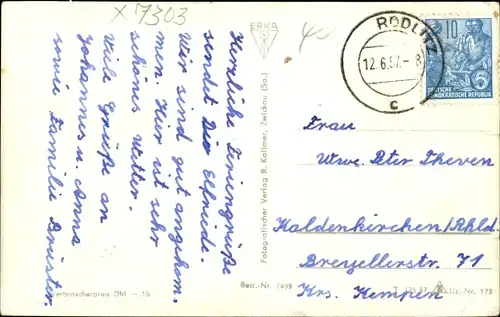 X 7303
Herzliche Feriengrüße
sendet Dir Elfriede.
Wir sind gut angekom-
men. Hier ist sehr
schönes Wetter.
Viele Grüße an
Johannes u. Anna
sowie Familie Brüster.
Verbraucherpreis DM —.15
ERKA
Fotografischer Verlag R. Kallmer, Zwickau (Sa.)
Best.-Nr. 7499
RÖDLITZ
12.6.57.-8
c
10
DEUTSCHE
DEMOKRATISCHE REPUBLIK
Frau
Wwe. Peter Theven
Kaldenkirchen/Rhld.
Breyellerstr. 71
Krs. Kempen
Liz.-Nr. 172